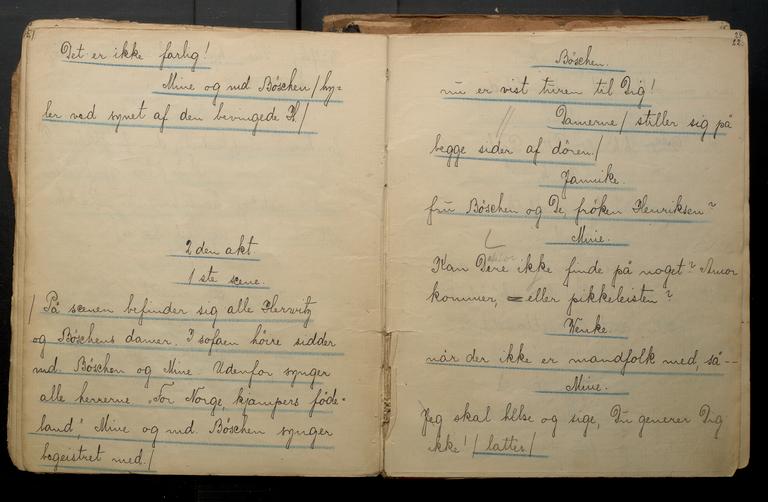 Det er ikke farlig!
Mine og md Böschen / hy-
ler ved synet af den bevingede H. /
2 den akt.
1 ste scene.
/ På scenen befinder sig alle Herwitz
og Böschens damer. I sofaen höire sidder
md. Böschen og Mine. Udenfor synger
alle herrerne "For Norge kjæmpers föde-
land", Mine og md. Böschen synger
begeistret med. /
Böschen.
nu er vist turen til Dig!
Damerne / stiller sig på
begge sider af dören. /
Jannike.
fru Böschen og De, fröken Henriksen?
Mine.
Kan Dere ikke finde på noget? Amor
kommer, = eller pikkeleisten?
Wenke.
når der ikke er mandfolk med, så --
Mine.
Jeg skal hilse og sige, Du generer Dig
ikke! / latter /